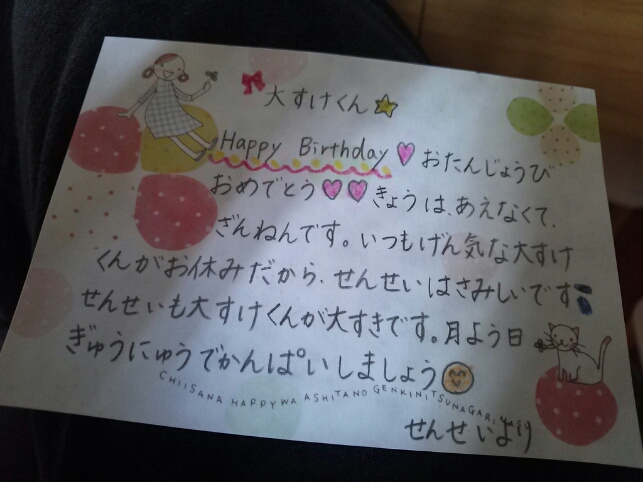 大すけくん
Happy Birthday おたんじょうび
おめでとう きょうは、あえなくて、
ざんねんです。いつもげん気な大すけ
くんがお休みだから、せんせいはさみしいです
せんせいも大すけくんが大すきです。月よう日
ぎゅうにゅうでかんぱいしましょう
CHIISANA HAPPYWA ASHITANO GENKINI TSUNAGARU
せんせいより